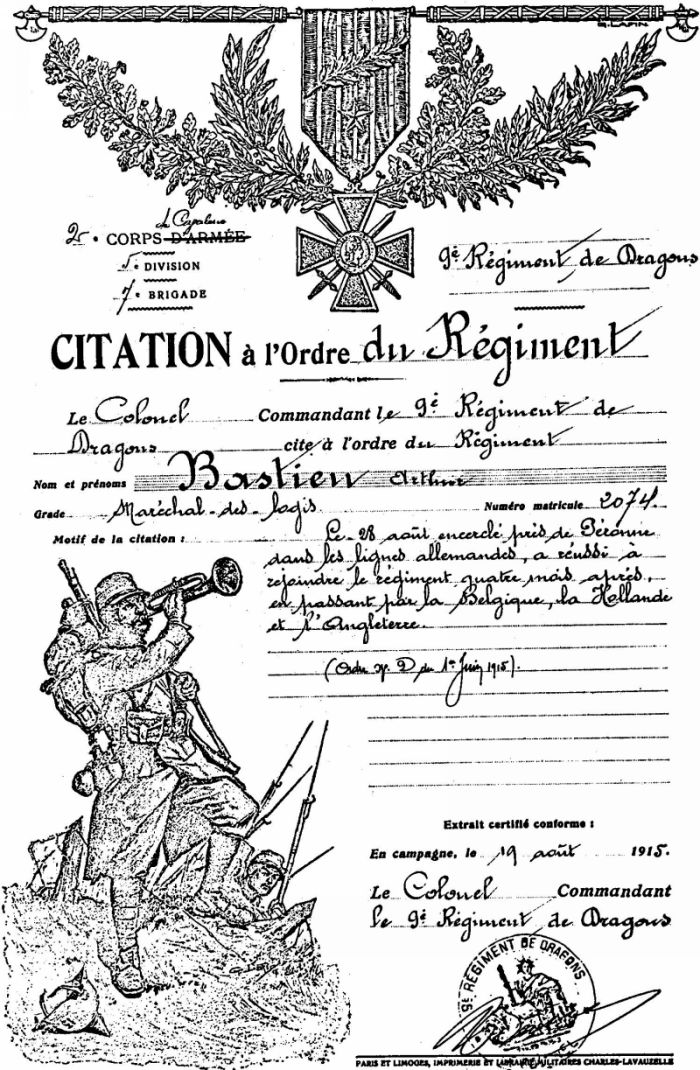 G. LAFIN
de Cavalerie
2e CORPS D'ARMÉE
5e DIVISION
7e BRIGADE
9e Régiment de Dragons
CITATION à l'Ordre du Régiment
Le Colonel Commandant le 9e Régiment de
Dragons cite à l'ordre du Régiment
Nom et prénoms Bastien Arthur
Grade Maréchal-des-logis Numéro matricule 2074.
Motif de la citation : Le 28 août encerclé près de Péronne
dans les lignes allemandes, a réussi à
rejoindre le régiment quatre mois après,
en passant par la Belgique, la Hollande
et l'Angleterre.
(Ordre N° D du 1er Juin 1915).
Extrait certifié conforme :
En campagne, le 19 août 1915.
Le Colonel Commandant
le 9e Régiment de Dragons
9e REGIMENT DE DRAGONS
PARIS ET LIMOGES, IMPRIMERIE ET LIBRAIRIE MILITAIRES CHARLES-LAVAUZELLE